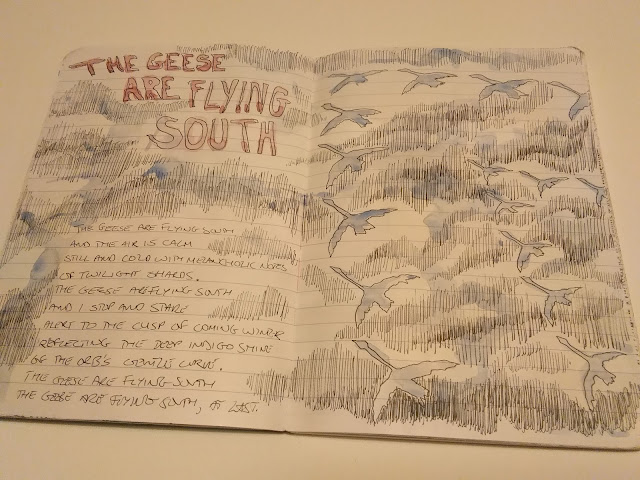 THE GEESE
ARE FLYING
SOUTH
THE GEESE ARE FLYING SOUTH
AND THE AIR IS CALM
STILL AND COLD WITH MELANCHOLIC NOTES
OF TWILIGHT SHARDS.
THE GEESE ARE FLYING SOUTH
AND I STOP AND STARE
ALERT TO THE CUSP OF COMING WINTER
REFLECTING THE DEEP INDIGO SHINE
OF THE ORB'S GENTLE CURVE.
THE GEESE ARE FLYING SOUTH
THE GEESE ARE FLYING SOUTH, AT LAST.